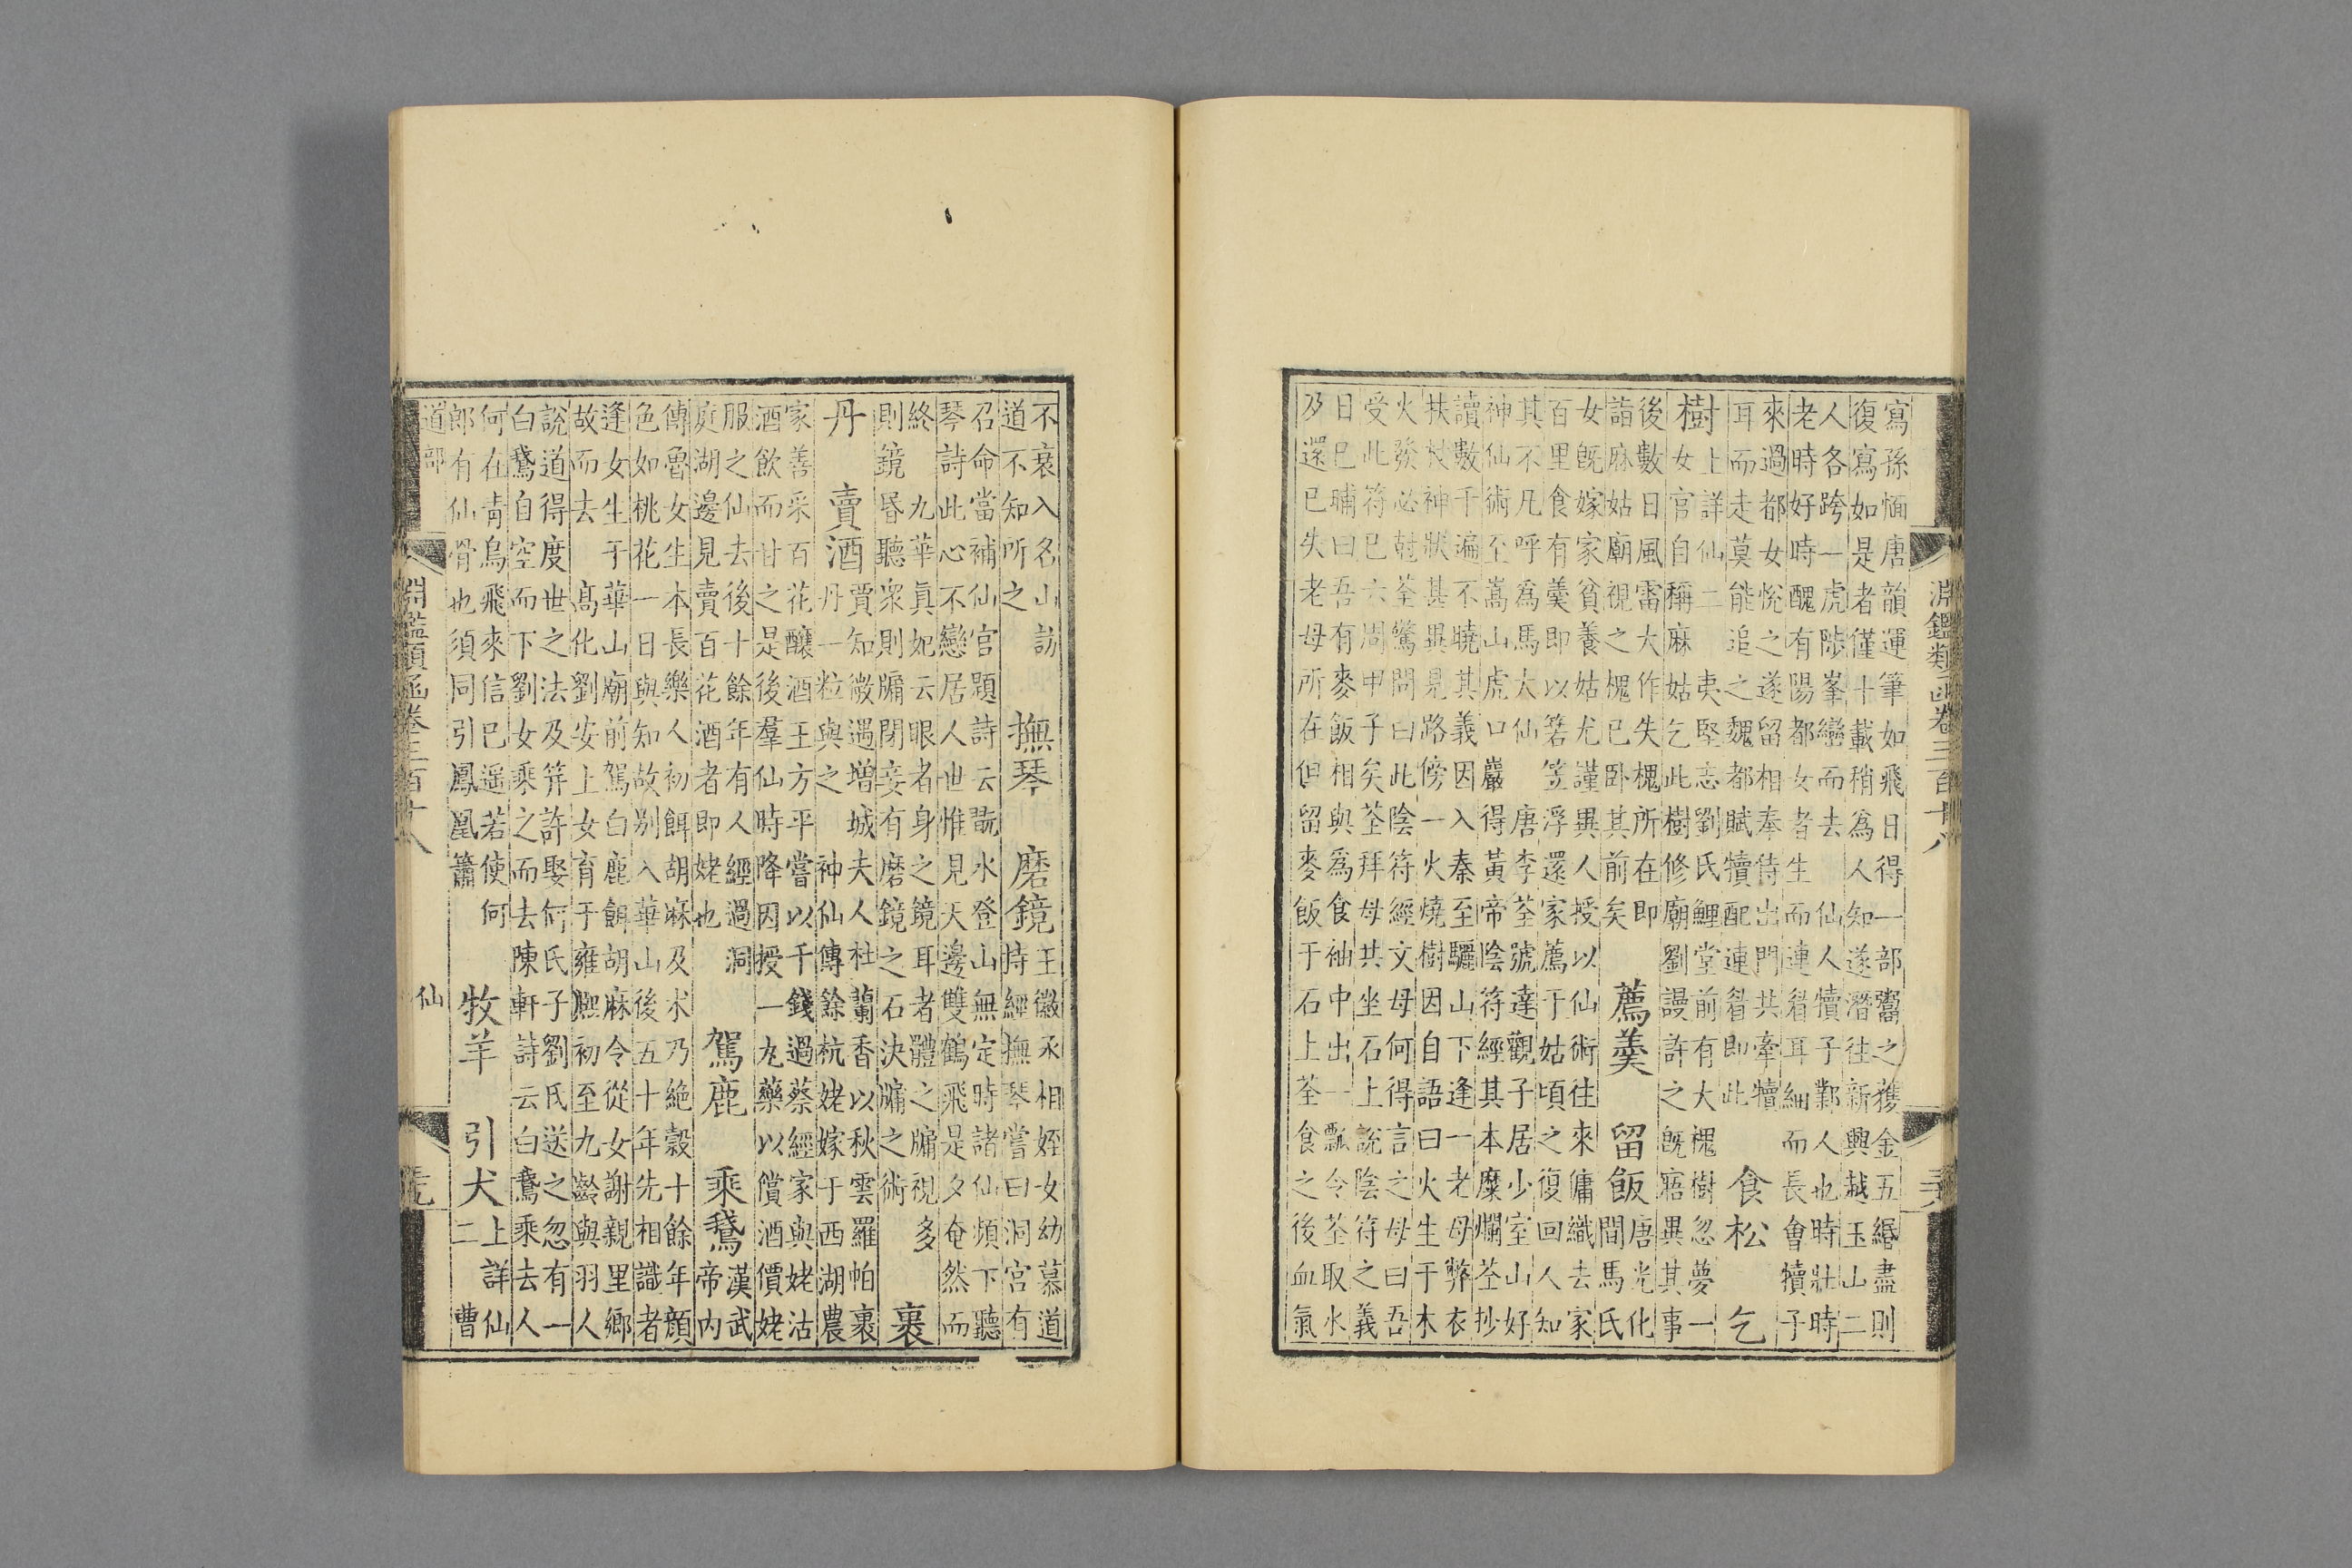 淵鑑類函卷三百十八
寫孫愐唐韻運筆如飛日得一部鬻之獲金五緡盡則
復寫如是者僅十載稍爲人知遂潛往新興越玉山二
人各跨一虎陟峯巒而去 仙人犢子鄴人也時壯時
老時好時醜有陽都女者生而連眉耳細而長會犢子
來過都女悅之遂留相奉侍出門共牽犢
耳而走莫能追之魏都賦犢配連眉即此
食松 乞
樹
上詳仙二 夷堅志劉氏鯉堂前有大槐樹忽夢一
女官自稱麻姑乞此樹修廟劉謾許之既寤異其事
後數日風雷大作失槐所在即
詣麻姑廟視之槐已卧其前矣
薦羹 留飯
唐光化
間馬氏
女既嫁家貧養姑尤謹異人授以仙術往來傭織去家
百里食有羹即以箬笠浮還家薦于姑頃之復回人知
其不凡呼爲馬大仙 唐李荃號達觀子居少室山好
神仙術至嵩山虎口巖得黃帝陰符經其本糜爛荃抄
讀數千遍不曉其義因入秦至驪山下逢一老母弊衣
扶杖神狀甚異見路傍一火燒樹因自語曰火生于木
火發必尅荃驚問曰此陰符經文母何得言之母曰吾
受此符已六周甲子矣荃拜母共坐石上說陰符之義
日已晡曰吾有麥飯相與爲食袖中出一瓢令荃取水
及還已失老母所在但留麥飯于石上荃食之後血氣
不衰入名山訪
道不知所之
撫琴 磨鏡
王徽永相姪女幼慕道
持經撫琴嘗曰洞宮有
召命當補仙官題詩云翫水登山無定時諸仙頻下聽
琴詩此心不戀居人世惟見天邊雙鶴飛是夕奄然而
終 九華眞妃云眼者身之鏡耳者體之牖視多
則鏡昏聽衆則牖閉妾有磨鏡之石決牖之術
裹
丹 賣酒
賈知微遇增城夫人杜蘭香以秋雲羅帕裹
丹一粒與之 神仙傳餘杭姥嫁于西湖農
家善采百花釀酒王方平嘗以千錢過蔡經家與姥沽
酒飲而甘之是後羣仙時降因授一丸藥以償酒價姥
服之仙去後十餘年有人經過洞
庭湖邊見賣百花酒者即姥也
駕鹿 乘鵞
漢武
帝内
傳魯女生本長樂人初餌胡麻及朮乃絶穀十餘年顏
色如桃花一日與知故別入華山後五十年先相識者
逢女生于華山廟前駕白鹿餌胡麻令從女謝親里鄉
故而去 高化劉安上女育于雍熙初至九齡與羽人
說道得度世之法及筓許娶何氏子劉氏送之忽有一
白鵞自空而下劉女乘之而去陳軒詩云白鵞乘去人
何在青鳥飛來信已遥若使何
郎有仙骨也須同引鳳凰簫
牧羊 引犬
上詳仙
二 曹
道部 仙
淵鑑類函卷三百十八